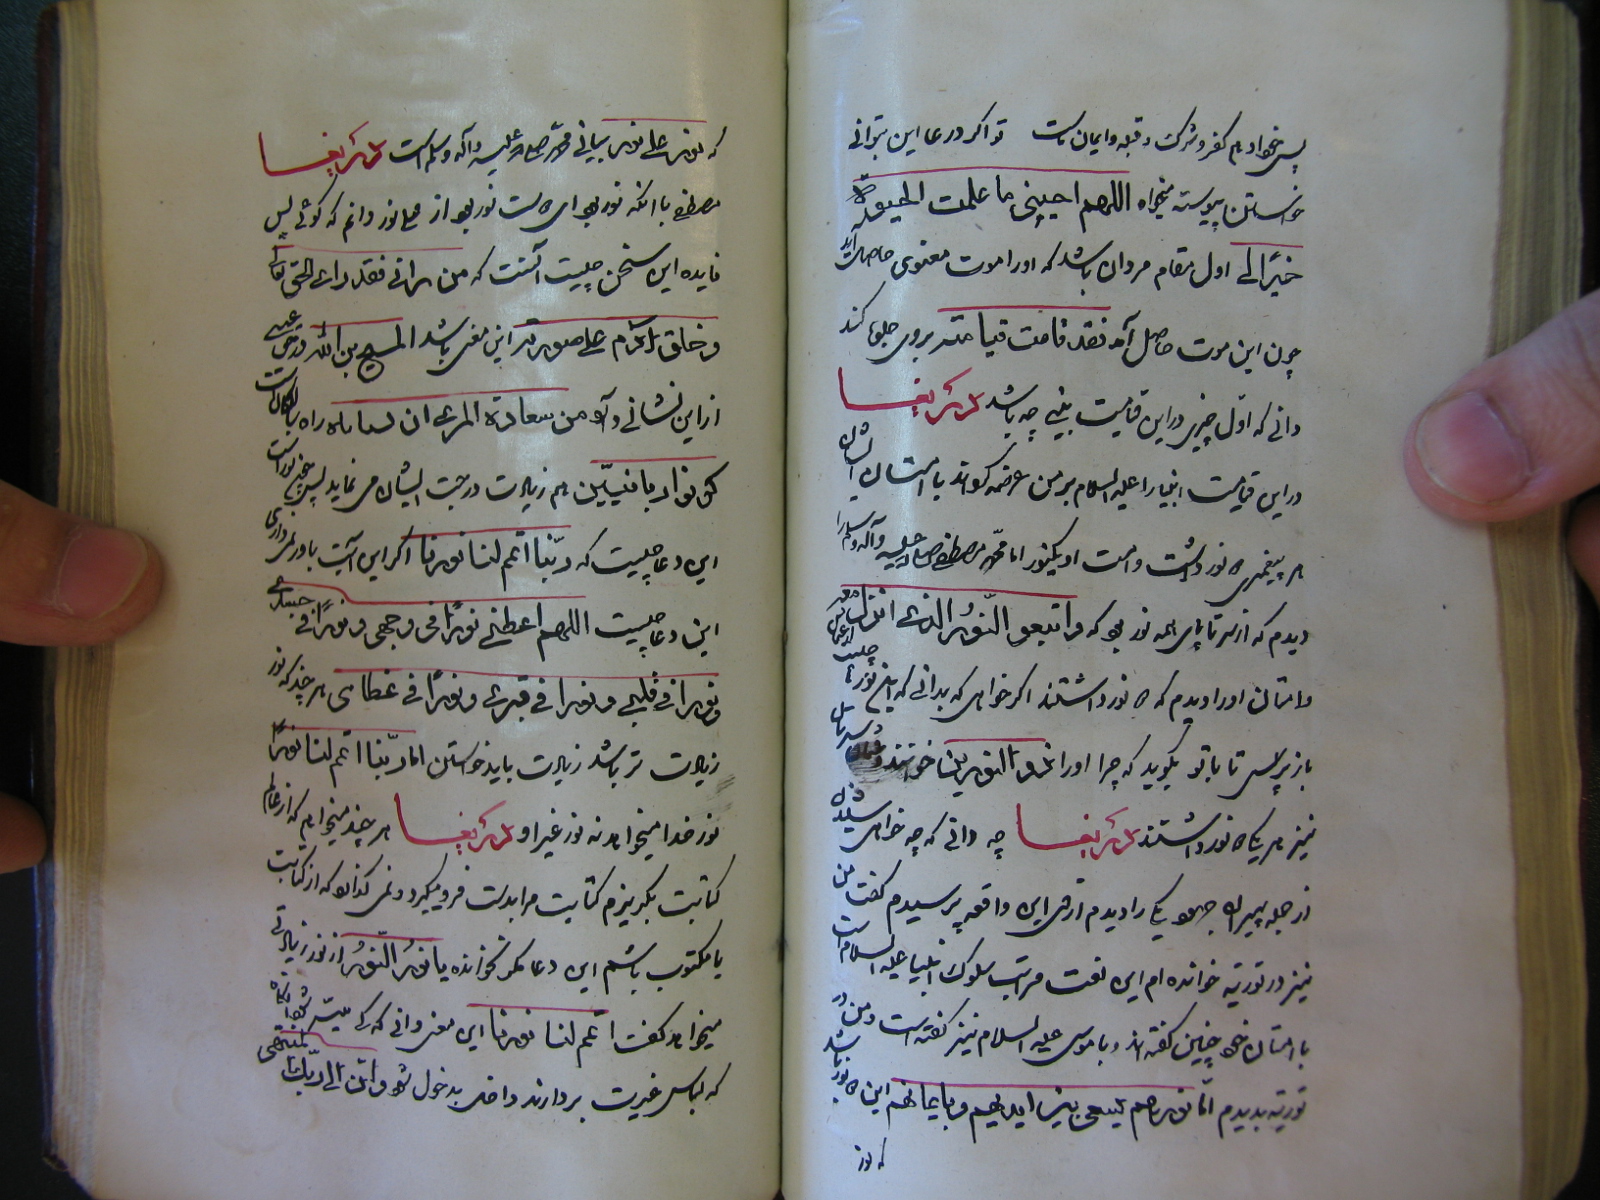 پس نخواد هم کفر و شرک و قبله و ایمان ماست تو اگر در عا این بتوانی
خواستن پیوسته میخواه اللهم احیینی ما علمت الحیوة
خیرًا لی اول مقام مردان باشد که او را موت معنوی حاصل آید
چون این موت حاصل آمد فقد قامت قیامته بروی جلوه کند
دانی که اول چیزی در این قیامت بینی چه باشد ای عزیز
در این قیامت انبیا را علیه السلام بر من عرضه کردند با امتان ایشان
هر پیغمبری دو نور داشت و امت او یکنور اما محمد مصطفی صلی الله علیه و آله وسلم را
دیدم که از سر تا پای همه نور بود که واتبعوا النور الذی انزل معه
و امتان او را دیدم که دو نور داشتند اگر خواهی که بدانی که این نورها چیست
باز پرس تا با تو بگوید که چرا او را ذو النورین خواندند
نیز هر یک دو نور داشتند چه دانی که چه خواهی شنیدن
از جمله پیران جهود یکی را دیدم از وی این واقعه پرسیدم گفت من
نیز در توریة خوانده ام این نعت مراتب سلوک انبیا علیه السلام است
با امتان خود چنین گفته اند و با موسی علیه السلام نیز گفته است و من در
توریة بدیدم اما نورهم یسعی بین ایدیهم وبایمانهم این دو نور باشد
که نور
که نور علی نور بیانی محمد صلی الله علیه وآله وسلم است
مصطفی با آنکه نور بود ای دوست نور بود از محا نور دانم که گوئی پس
فایده این سخن چیست آنست که من رآنی فقد رای الحق تعالی
و خلق آدم علی صورته این معنی باشد المسیح بن الله در حق عیسی
از این نشانی و آمد من سعادة المرء ان یشابه راه با کمالات
کونوا ربانیین هم زیادت درجت ایشان می نماید پس چندین نور است
این دعا چیست که ربنا اتمم لنا نورنا اگر این آیت باور نمی داری
این دعا چیست اللهم اعطنی نورًا فی وجهی ونورًا فی جسدی
ونورا فی قلبی ونورا فی قبری ونورًا فی عظامی هر چند که نور
زیادت تر باشد زیادت باید خواستن اما ربنا اتمم لنا نورنا
نور خدا میخواهد نه نور غیر او هر چند میخواهم که از عالم
کتابت بگریزم کتابت مرا بدست فرو میگیرد و نمی گذارد که از کتابت
با مکتوب باشم این دعا مگر نخوانده یا نور النور از نور زیادتی
میخواهد گفت اتمم لنا نورنا این معنی دانی که کی میسر شود آنگاه
که لباس غیریت بردارند داخلی بدخول شود وان الی ربک المنتهی